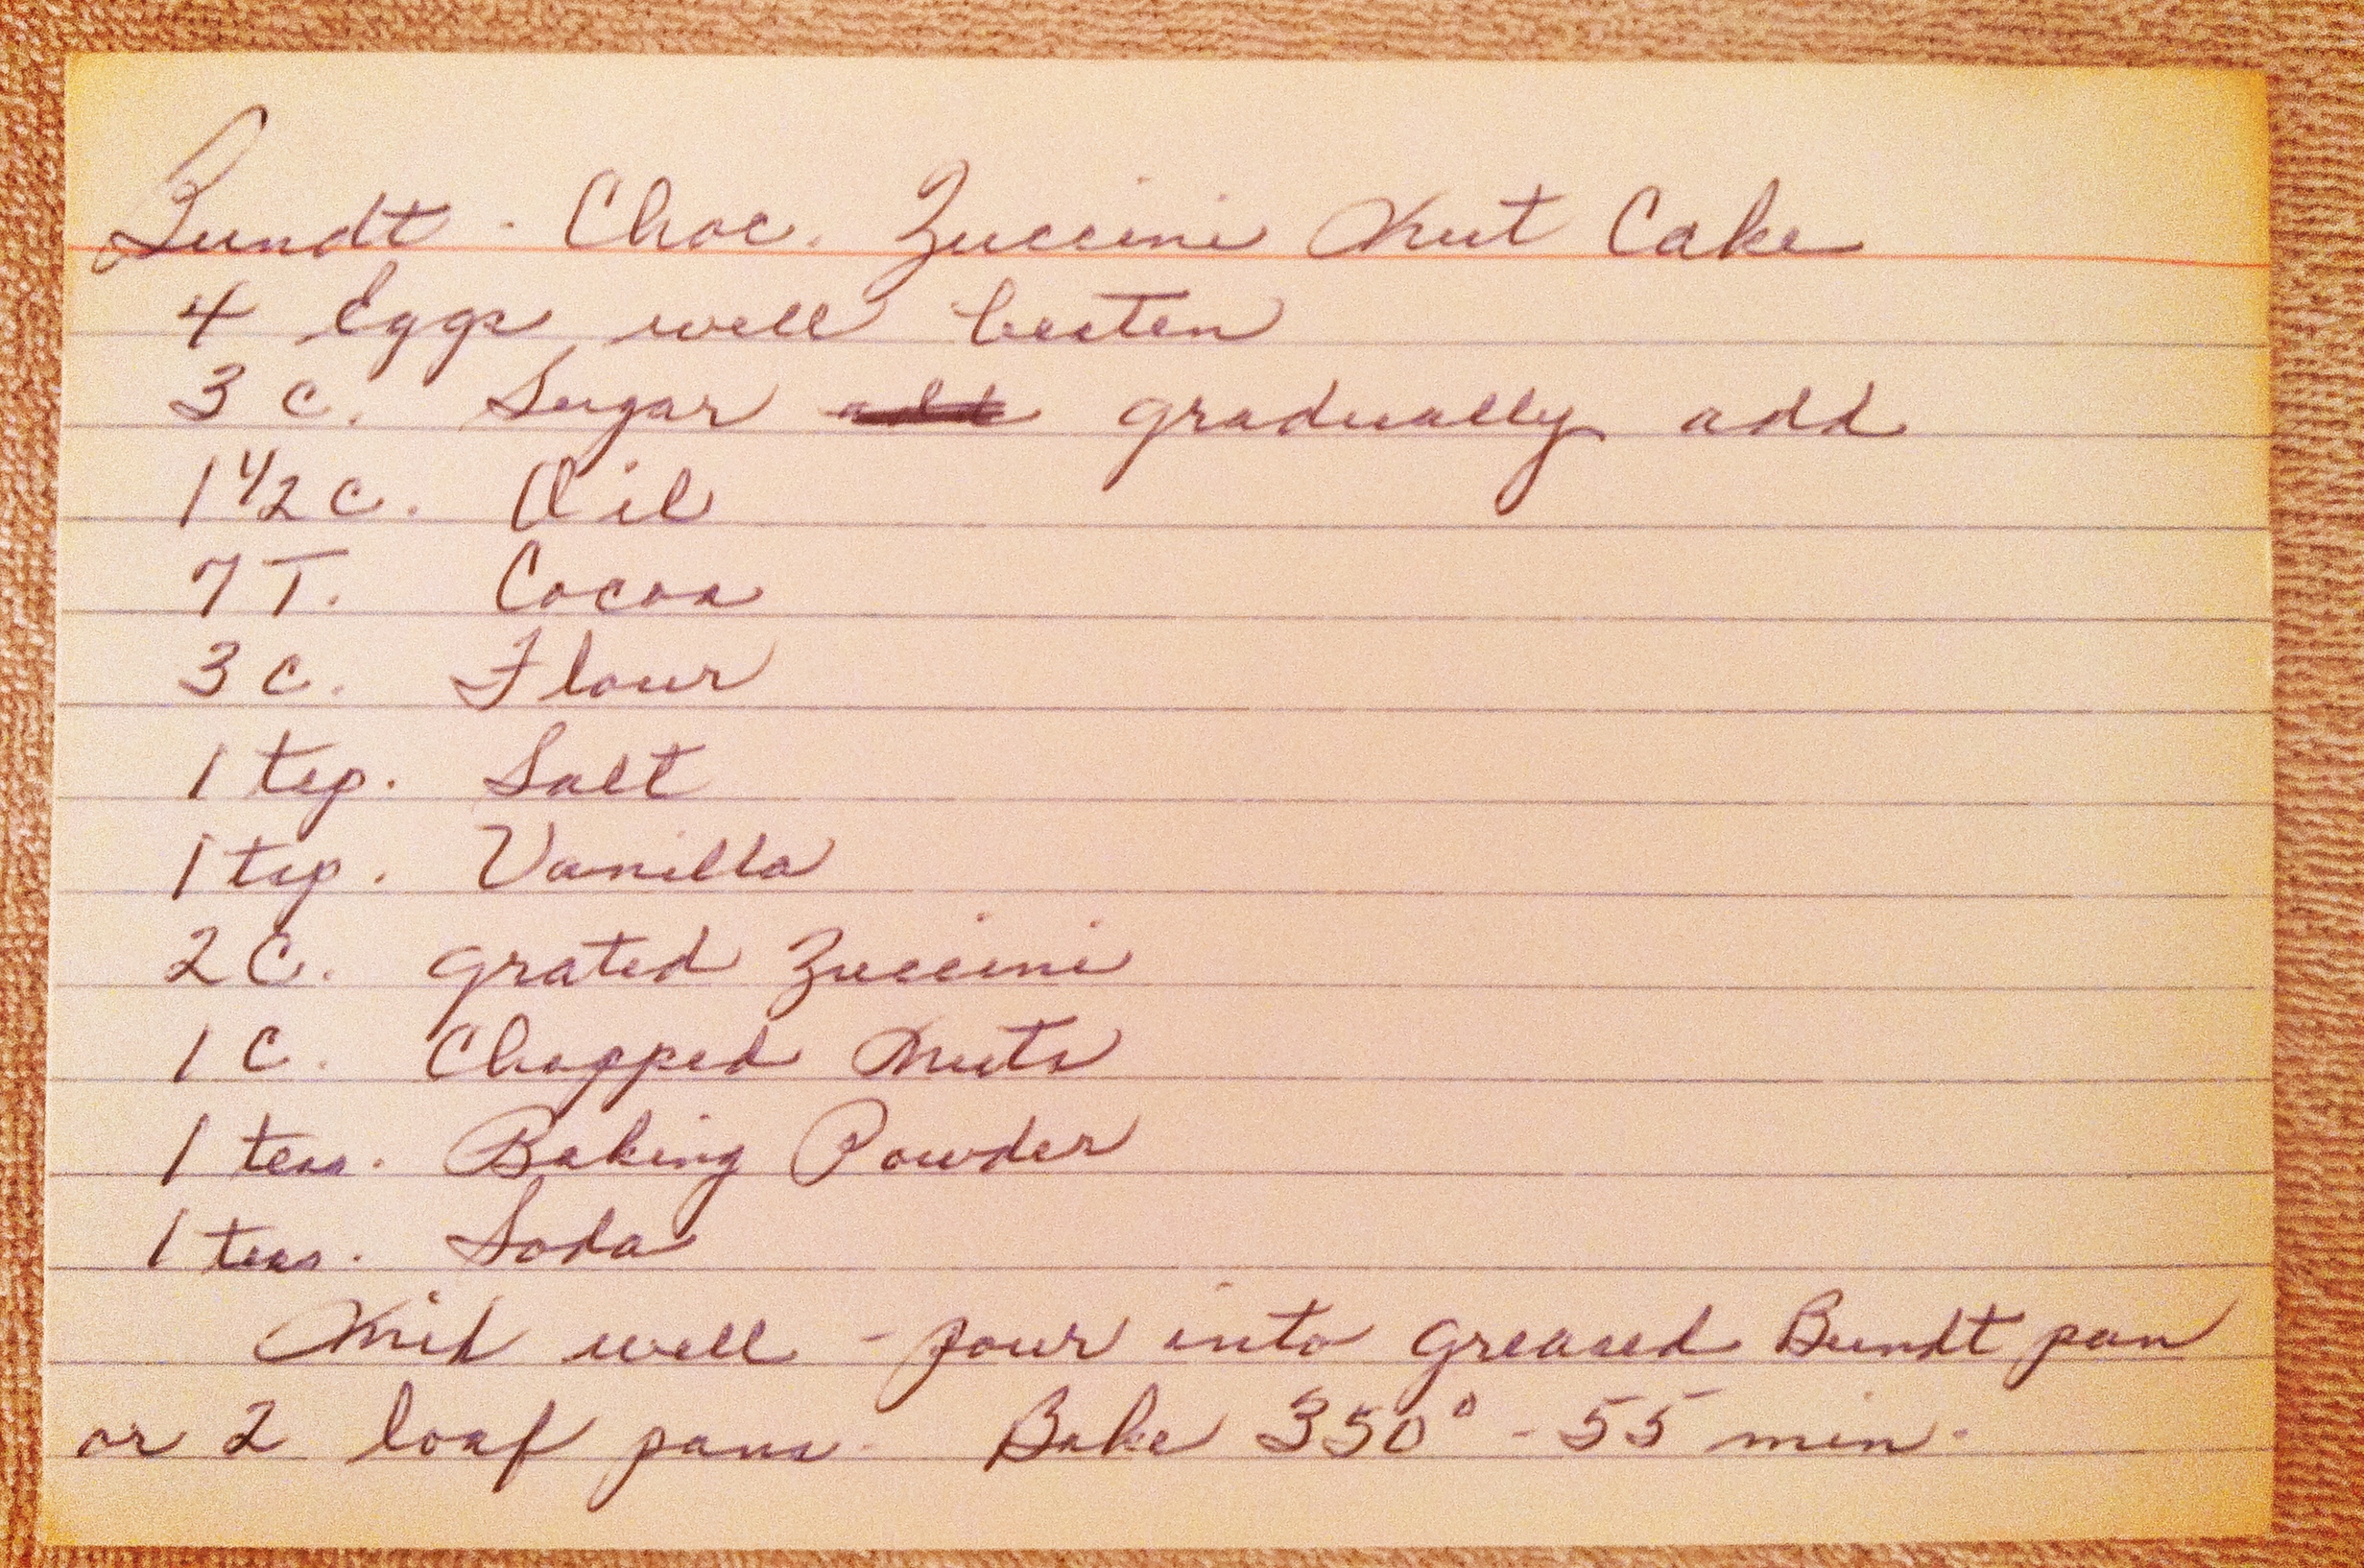 Bundt - Choc. Zuccini Nut Cake
4 Eggs well beaten
3 c. Sugar add gradually add
1 1/2 c. Oil
7 T. Cocoa
3 c. Flour
1 tsp. Salt
1 tsp. Vanilla
2 C. grated Zuccini
1 C. Chopped Nuts
1 teas. Baking Powder
1 teas. Soda
Mix well - pour into greased Bundt pan
or 2 loaf pans - Bake 350° - 55 min.